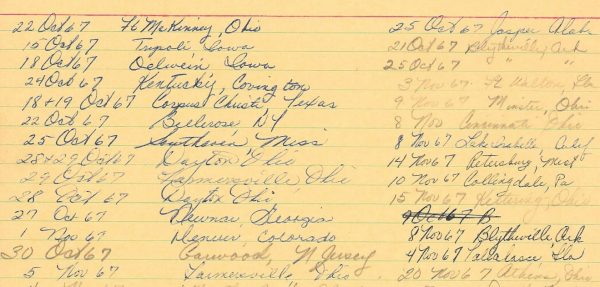 22 Oct 67 Ft McKinney, Ohio
15 Oct 67 Tripoli Iowa
18 Oct 67 Oelwein Iowa
24 Oct 67 Kentucky, Covington
18 & 19 Oct 67 Corpus Christi, Texas
22 Oct 67 Bellerose NY
25 Oct 67 Southaven, Miss
28 & 29 Oct 67 Dayton Ohio
29 Oct 67 Farmersville Ohio
28 Oct 67 Dayton Ohio
27 Oct 67 Newnan Georgia
1 Nov 67 Denver, Colorado
30 Oct 67 Garwood, N Jersey
5 Nov 67 Farmersville Ohio
25 Oct 67 Jasper Alab
21 Oct 67 Blytheville, Ark
25 Oct 67 " "
3 Nov 67 Ft Walton, Fla
9 Nov 67 Minster, Ohio
8 Nov Cincinnati Ohio
8 Nov 67 Lake Isabella, Calif
14 Nov 67 Petersburg Mich
10 Nov 67 Collingdale, Pa
15 Nov 67 Kettering Ohio
9 Oct 67 B
8 Nov 67 Blytheville, Ark
4 Nov 67 Fla
20 Nov 67 Athens, Ohio